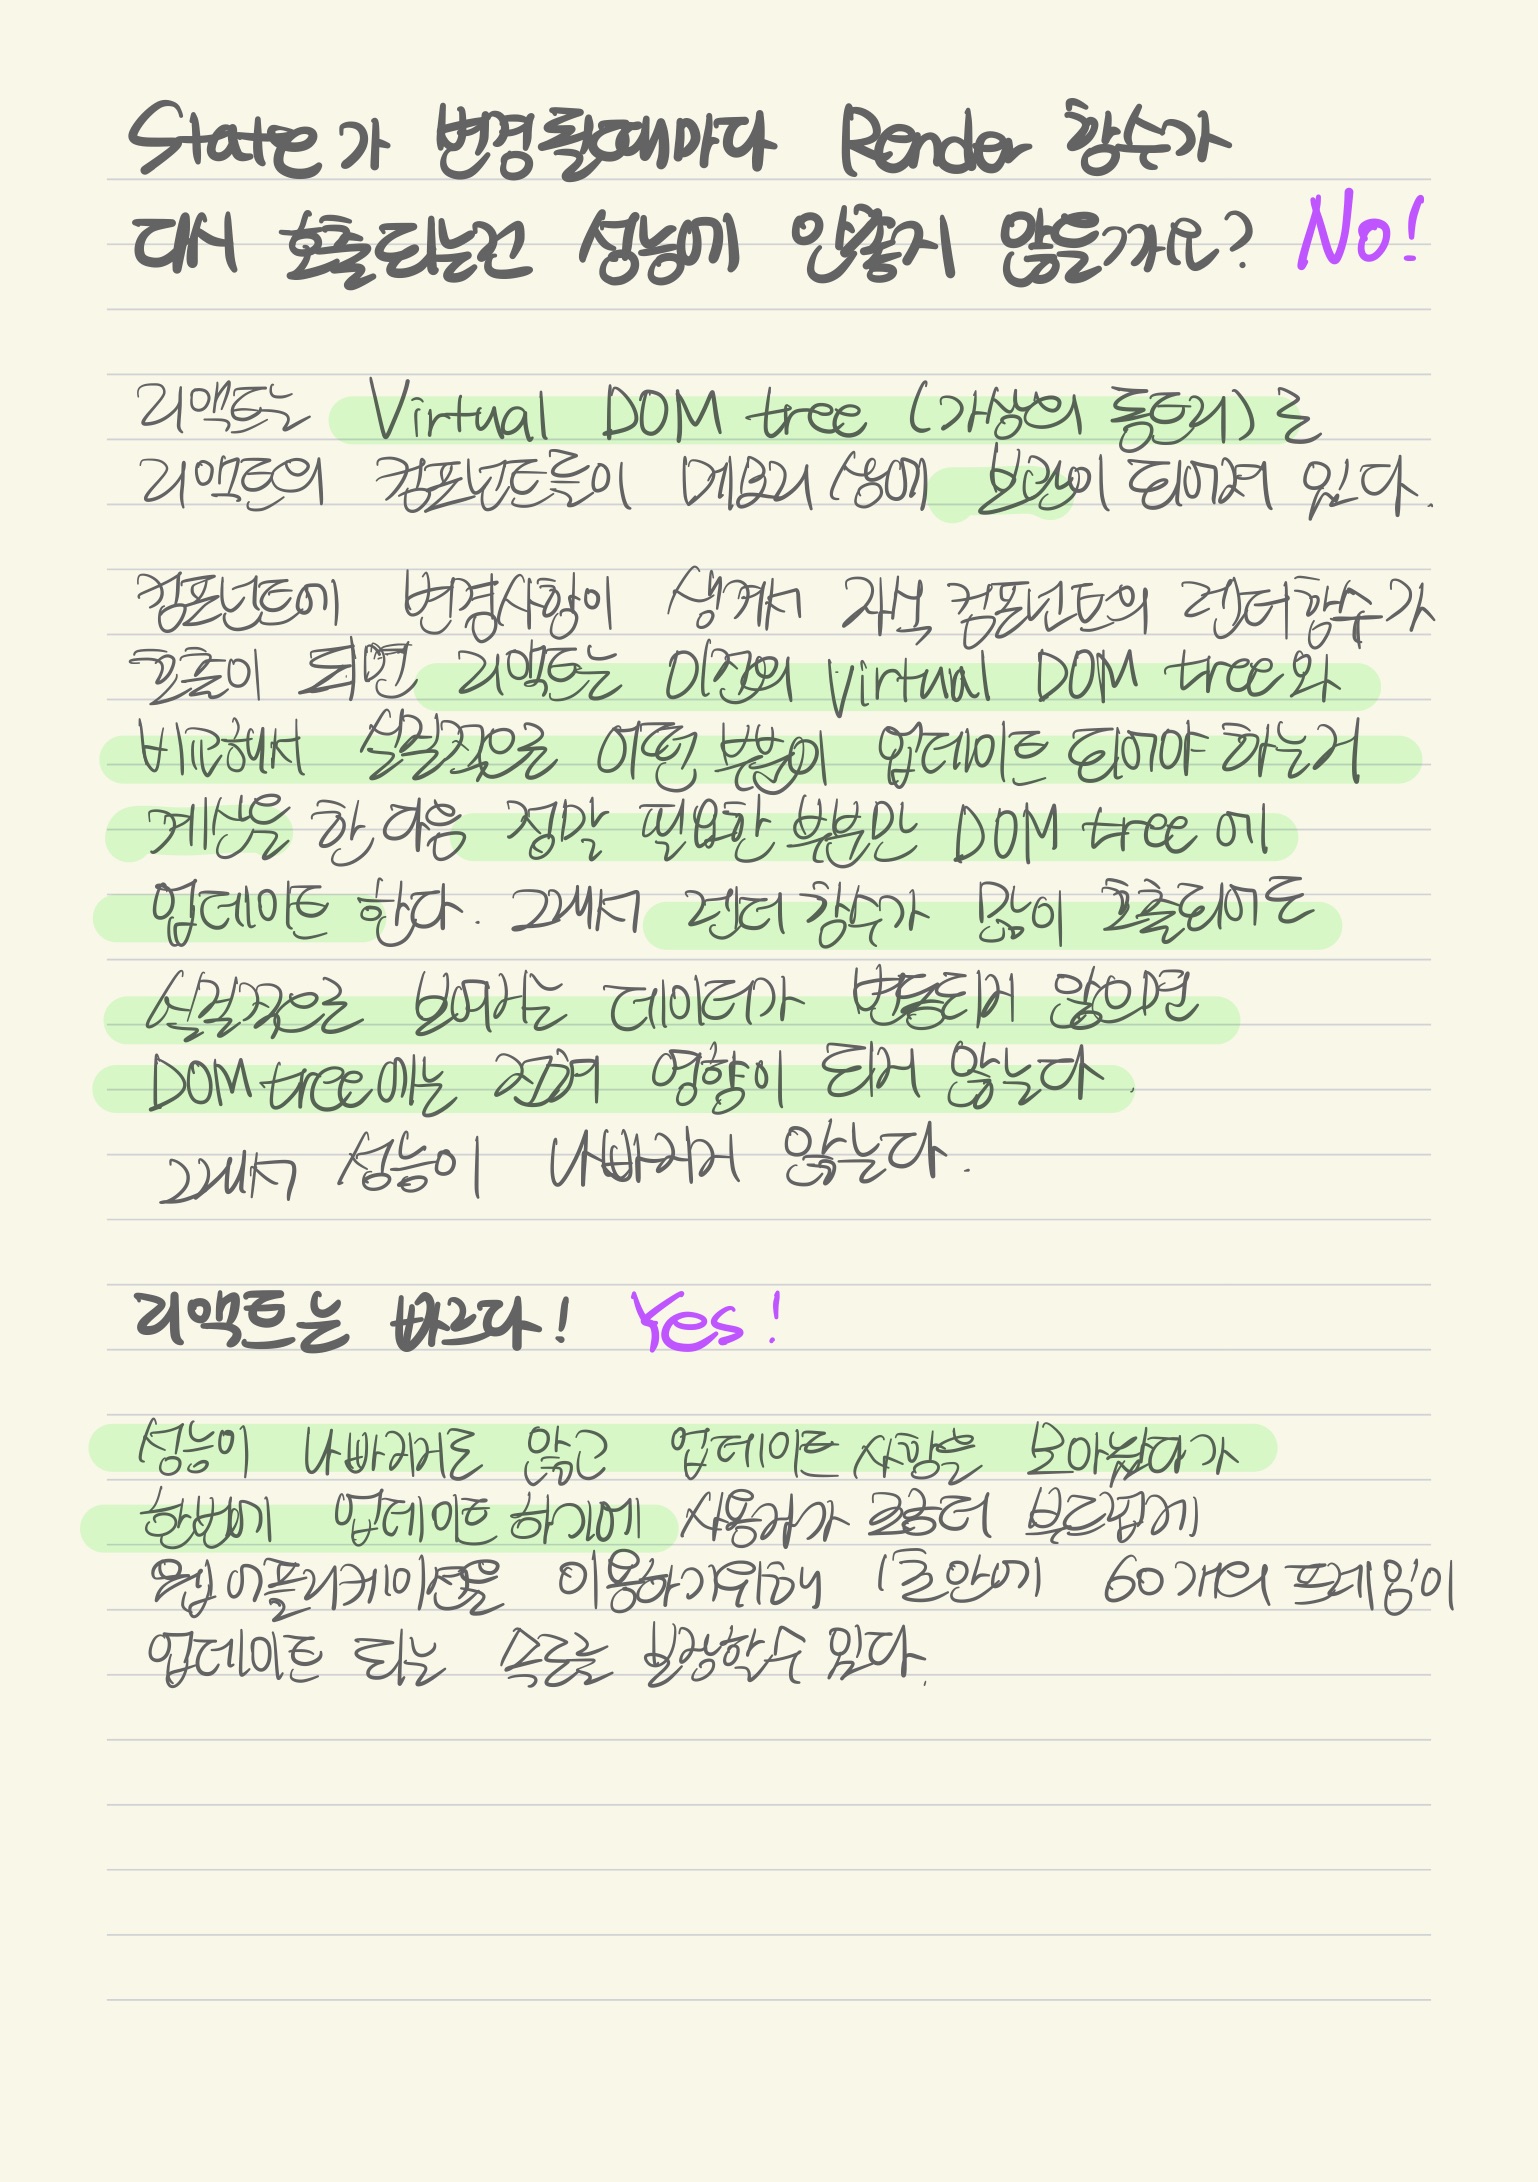 State가 변경될때마다 Render 함수가
대서 호출되는건 성능에 안좋지 않을까요? No!
리액트는 Virtual DOM tree (가상의 돔트리)로
리액트의 컴포넌트들이 메모리 상에 보관이 되어져 있다.
컴포넌트에 변경사항이 생겨서 자식 컴포넌트의 렌더함수가
호출이 되면 리액트는 이전의 Virtual DOM tree와
비교해서 실질적으로 어떤 부분이 업데이트 되어야 하는지
계산을 한 다음 정말 필요한 부분만 DOM tree에
업데이트 한다. 그래서 렌더 함수가 많이 호출되어도
실질적으로 보여지는 데이터가 변동되지 않으면
DOM tree에는 전혀 영향이 되지 않는다.
그래서 성능이 나빠지지 않는다.
리액트는 빠르다! Yes!
성능이 나빠지지도 않고 업데이트 사항을 모아놨다가
한번에 업데이트 하기에 사용자가 조금더 부드럽게
웹 어플리케이션을 이용하기위해 1초안에 60개의 프레임이
업데이트 되는 속도를 보장할수 있다.